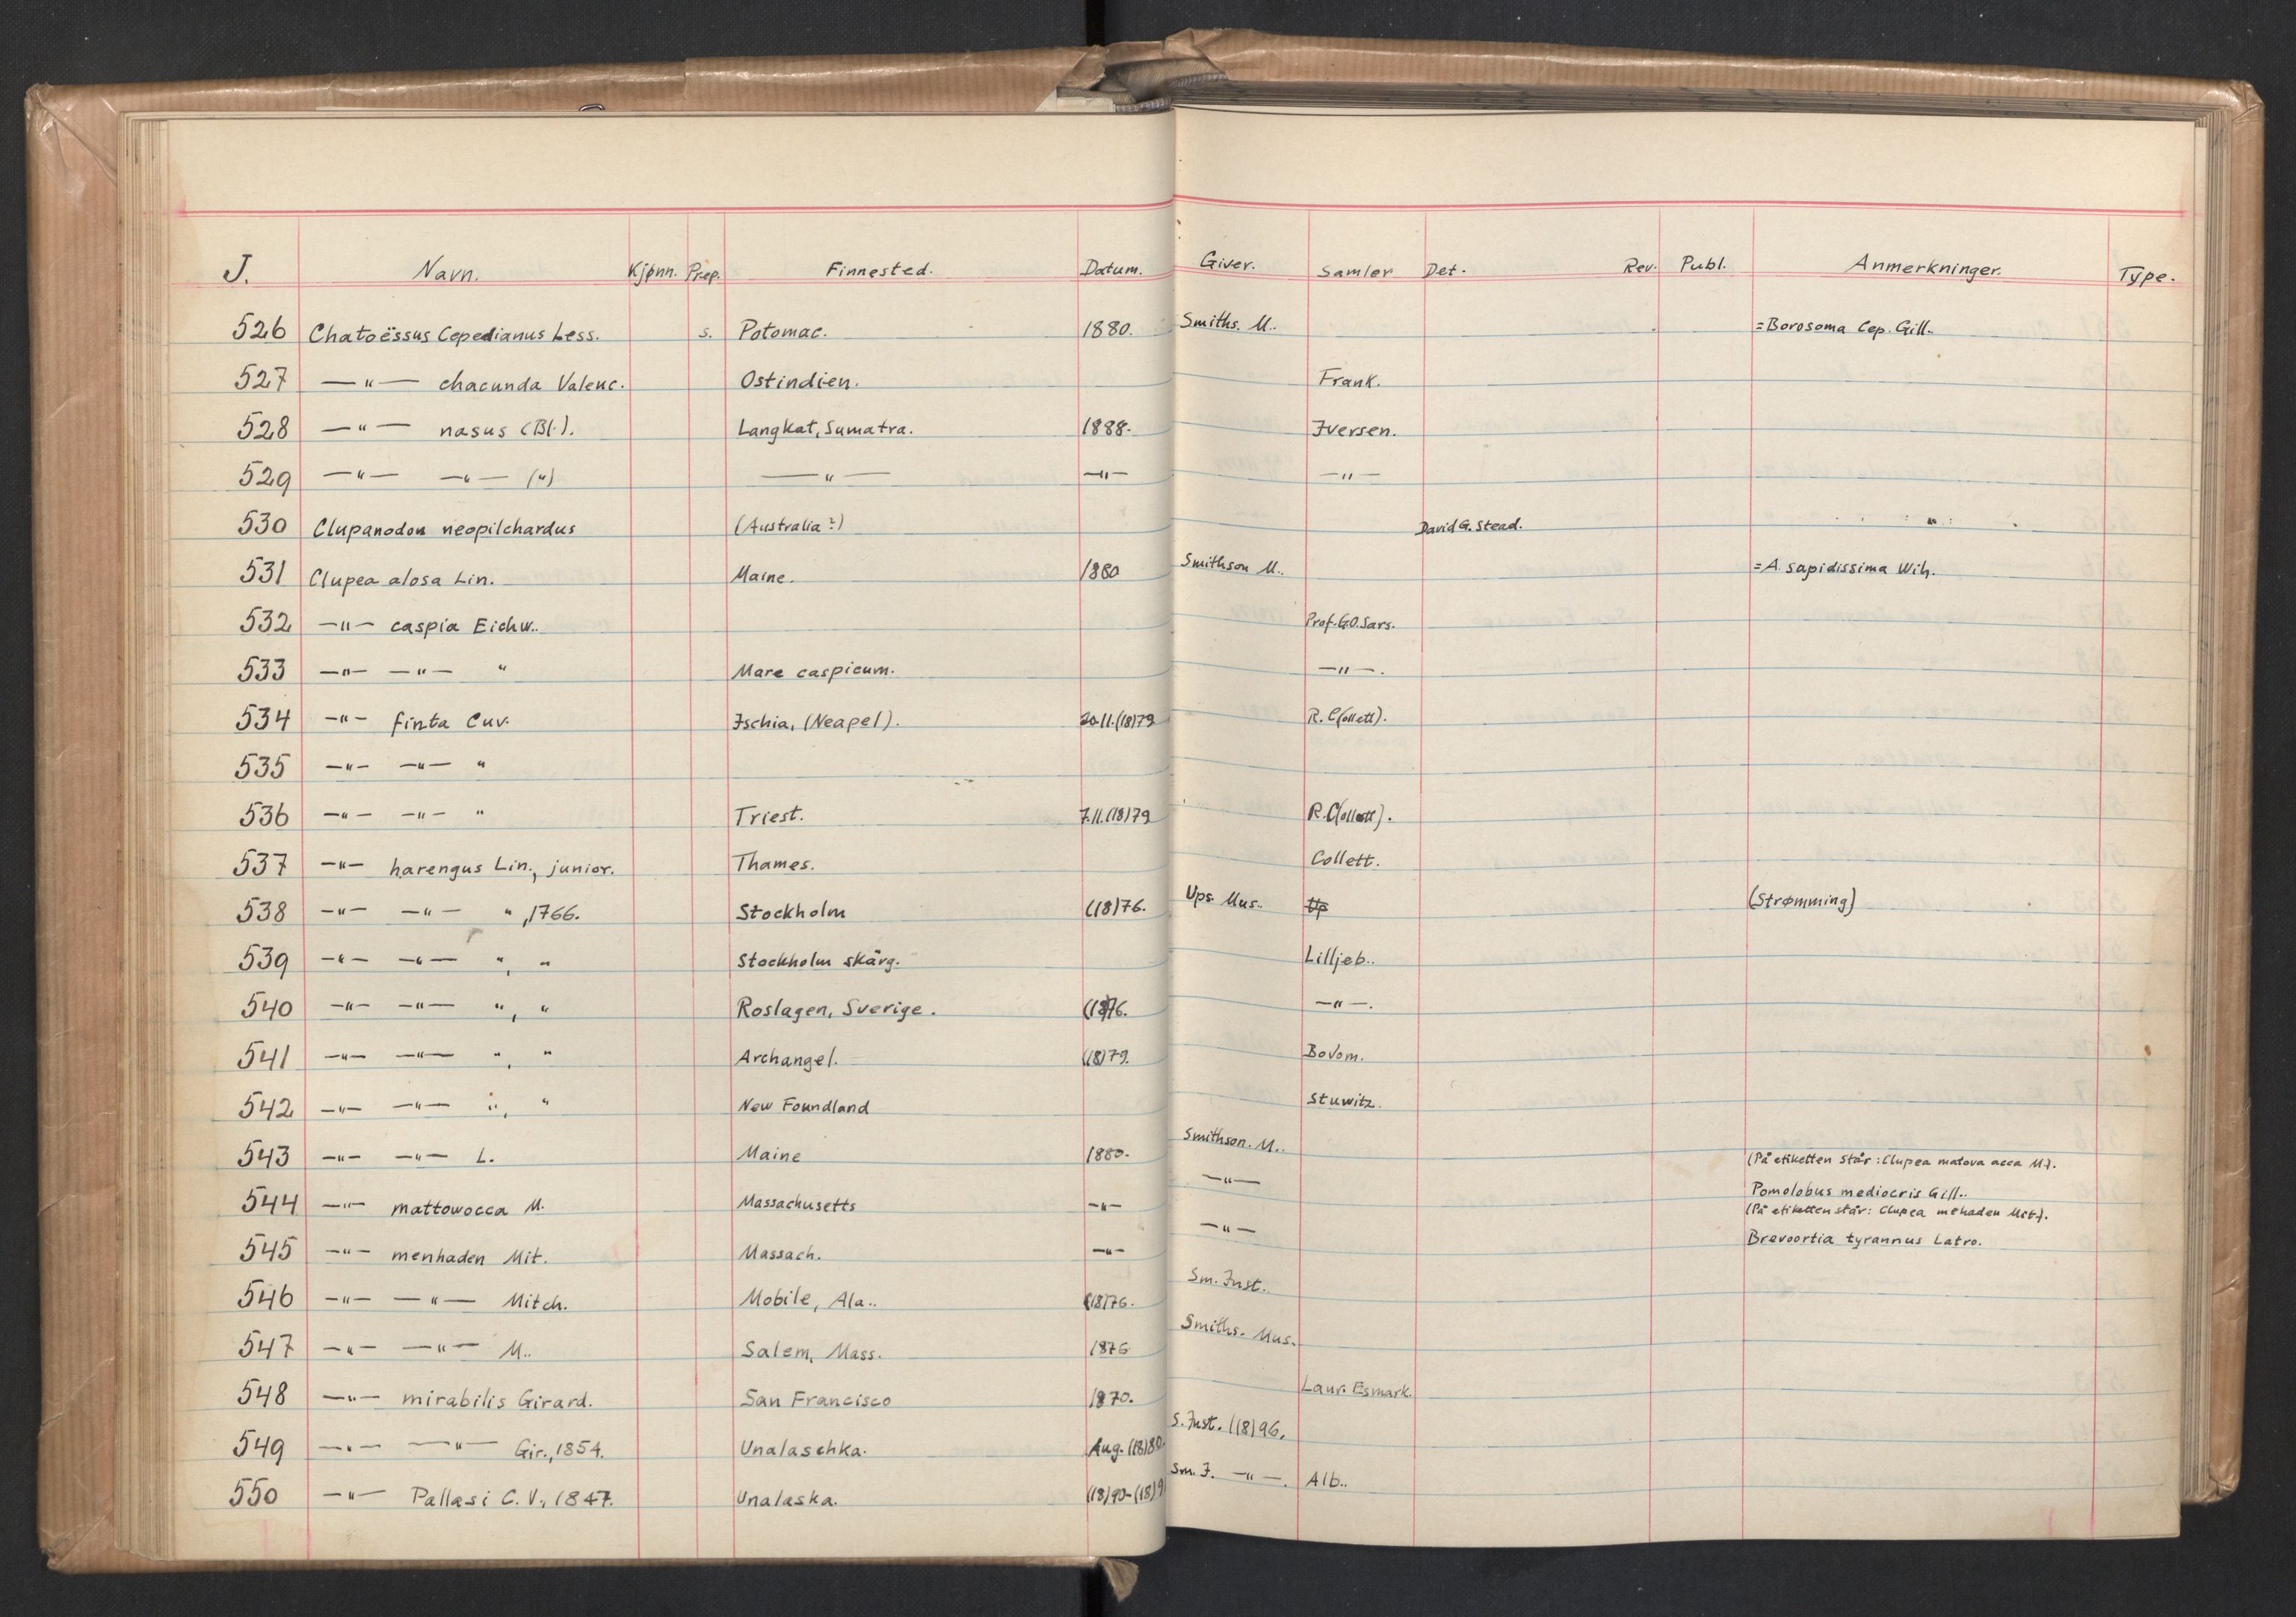 J. Navn. Kjønn. Prep. Finnested. Datum. Giver. Samler Det. Rev. Publ. Anmerkninger. Type.
526 Chatoëssus Cepedianus Less. s. Potomac. 1880. Smiths. M.. =Borosoma Cep. Gill..
527 —"— chacunda Valenc. Ostindien. Frank.
528 —"— nasus (Bl.). Langkat, Sumatra. 1888. Iversen.
529 —"— —"— (") —"— —"— —"—
530 Clupanodon neopilchardus (Australia?) David G. Stead. "
531 Clupea alosa Lin. Maine. 1880 Smithson M.. =A. sapidissima Wih.
532 —"— caspia Eichw.. Prof. G.O. Sars.
533 —"— —"— " Mare caspicum. —"—.
534 —"— finta Cuv. Ischia, (Neapel). 20.11.(18)79 R. C(ollett).
535 —"— —"— "
536 —"— —"— " Triest. 7.11.(18)79 R. C(ollett).
537 —"— harengus Lin., junior. Thames. Collett.
538 —"— —"— ", 1766. Stockholm (18)76. Ups. Mus.. Up (Strømming)
539 —"— —"— ", " Stockholm skärg. Lilljeb..
540 —"— —"— ", " Roslagen, Sverige. (18)76. —"—.
541 —"— —"— ", " Archangel. (18)79. Bovom.
542 —"— —"— ", " New Foundland Stuwitz.
543 —"— —"— L. Maine 1880. Smithson. M..
(På etiketten står: Clupea matova acca M.).
544 —"— mattowocca M. Massachusetts —"— —"— Pomolobus mediocris Gill..
(På etiketten står: Clupea mehaden Mit.).
545 —"— menhaden Mit. Massach. —"— —"— Brevoortia tyrannus Latro.
546 —"— —"— Mitch. Mobile, Ala.. (18)76. Sm. Inst.
547 —"— —"— M.. Salem, Mass. 1876 Smiths. Mus.
548 —"— mirabilis Girard. San Francisco 1870. Laur. Esmark.
549 —"— —"— Gir., 1854. Unalaschka. Aug. (18)80. S. Inst. (18)96.
550 —"— Pallasi C. V., 1847. Unalaska. (18)90-(18)9 Sm. I. —"—. Alb..